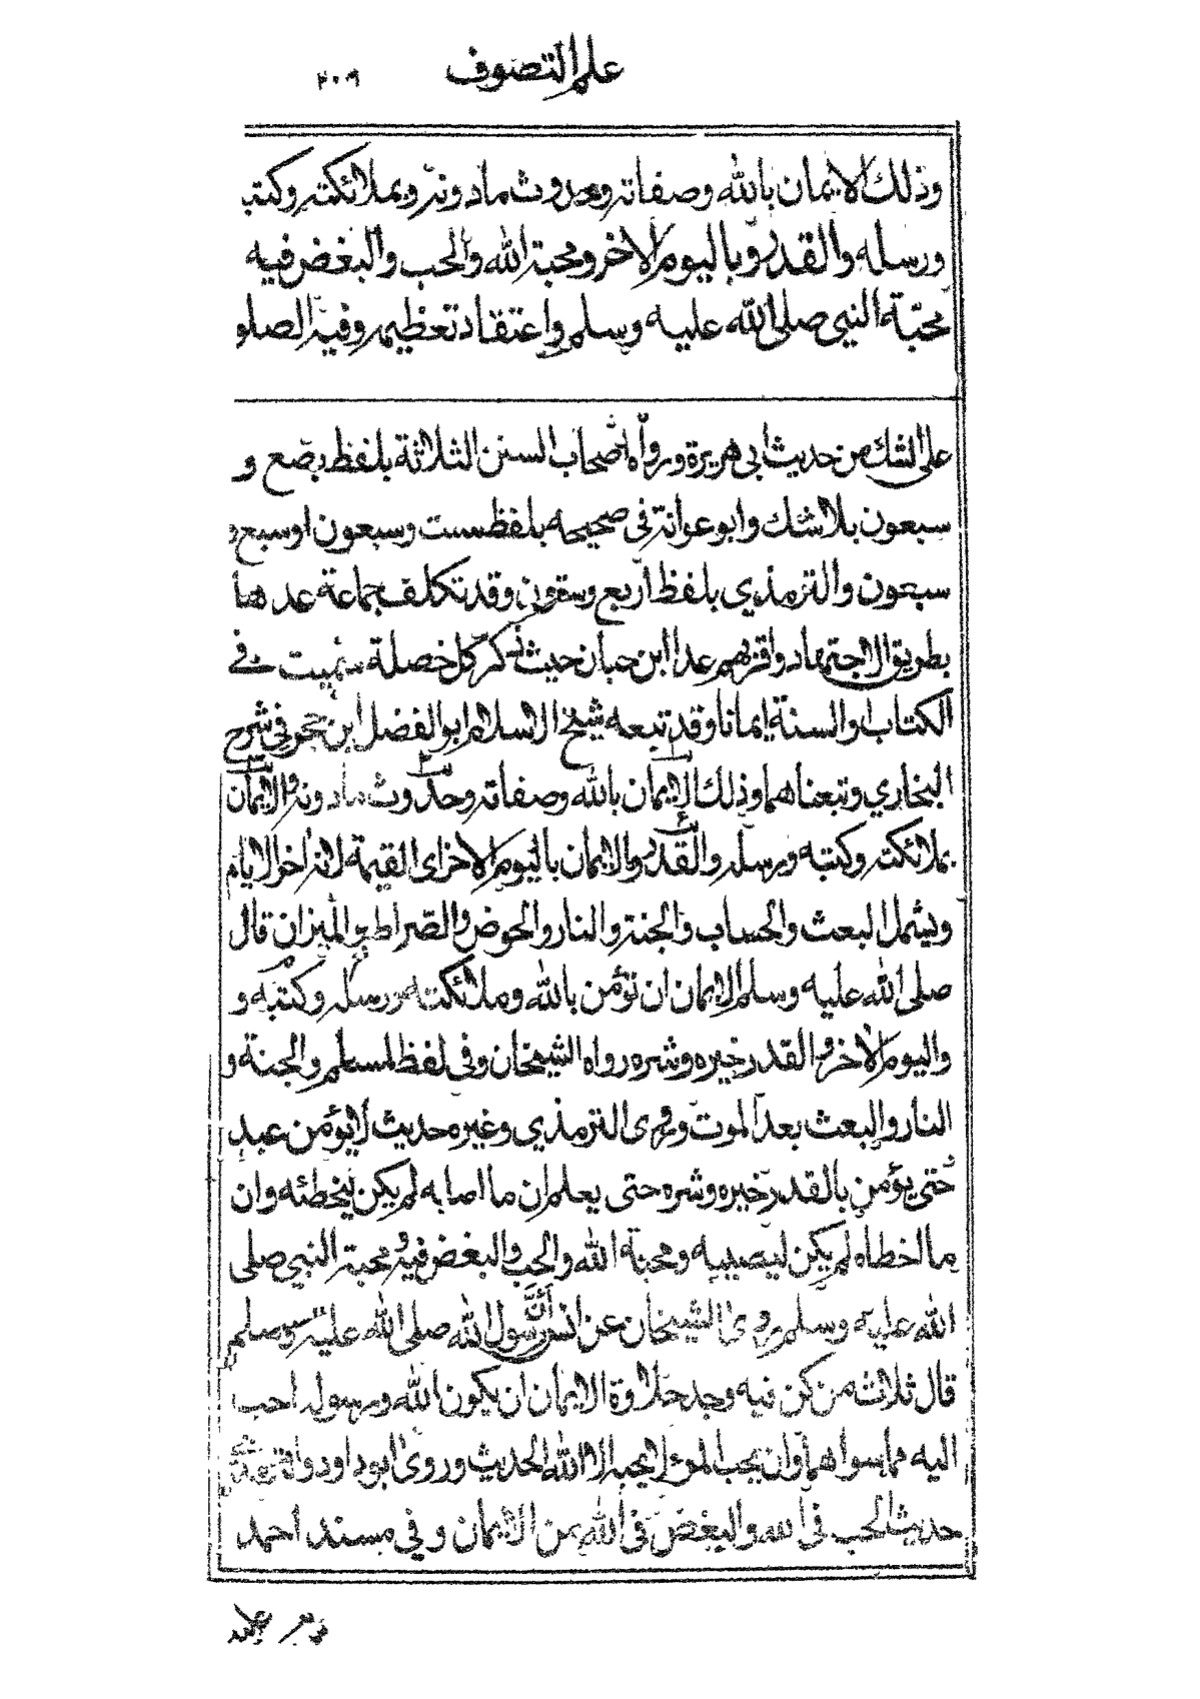 علم التصوف ٢٠٩
وذلك الايمان بالله وصفاته وحدوث مادونه وبملائكته وكتبه
ورسله والقدر وباليوم الاخر ومحبة الله والحب والبغض فيه
محبة النبي صلى الله عليه وسلم واعتقاد تعظيمه وفيه الصلو
على الشك من حديث ابي هريرة ورواه اصحاب السنن الثلاثة بلفظ بضع و
سبعون بلا شك وابو عوانة في صحيحه بلفظ ست وسبعون او سبع و
سبعون والترمذي بلفظ اربع وستون وقد تكلف جماعة عدها
بطريق الاجتهاد واقربهم عدا ابن حبان حيث ذكر كل خصلة سميت في
الكتاب والسنة ايمانا وقد تبعه شيخ الاسلام ابو الفضل ابن حجر في شرح
البخاري وتبعناهما وذلك الايمان بالله وصفاته وحدوث مادونه والايمان
بملائكته وكتبه ورسله والقدر والايمان باليوم الاخر اى القيمة لانه اخر الايام
ويشمل البعث والحساب والجنة والنار والحوض والصراط والميزان قال
صلى الله عليه وسلم الايمان ان تؤمن بالله وملائكته ورسله وكتبه و
واليوم الاخر والقدر خيره وشره رواه الشيخان وفي لفظ لمسلم والجنة و
النار والبعث بعد الموت وروى الترمذي وغيره حديث لا يؤمن عبد
حتى يؤمن بالقدر خيره وشره حتى يعلم ان ما اصابه لم يكن ليخطئه وان
ما اخطاه لم يكن ليصيبه ومحبة الله والحب والبغض فيه ومحبة النبي صلى
الله عليه وسلم روى الشيخان عن انس أن رسول الله صلى الله عليه وسلم
قال ثلاث من كن فيه وجد حلاوة الايمان ان يكون الله ورسوله احب
اليه مما سواهما وان يحب المرء لا يحبه الا الله الحديث وروى ابو داود والترمذي
حديث الحب في الله والبغض في الله من الايمان وفي مسند احمد